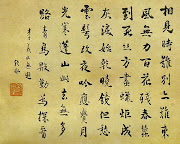 相見時難別亦難東
風無力百花殘春蠶
到死絲方盡蠟炬成
灰淚始乾曉鏡但愁
雲鬢改夜吟應覺月
光寒蓬山此去無多
路青鳥殷勤為探看